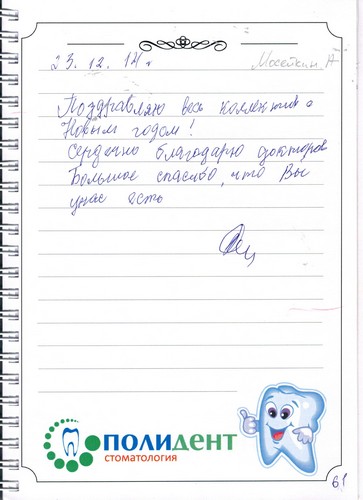 23.12.14г
Поздравляю весь коллектив с
Новым годом!
Сердечно благодарю докторов
Большое спасибо, что Вы
у нас есть
ПОЛИДЕНТ
СТОМАТОЛОГИЯ
61